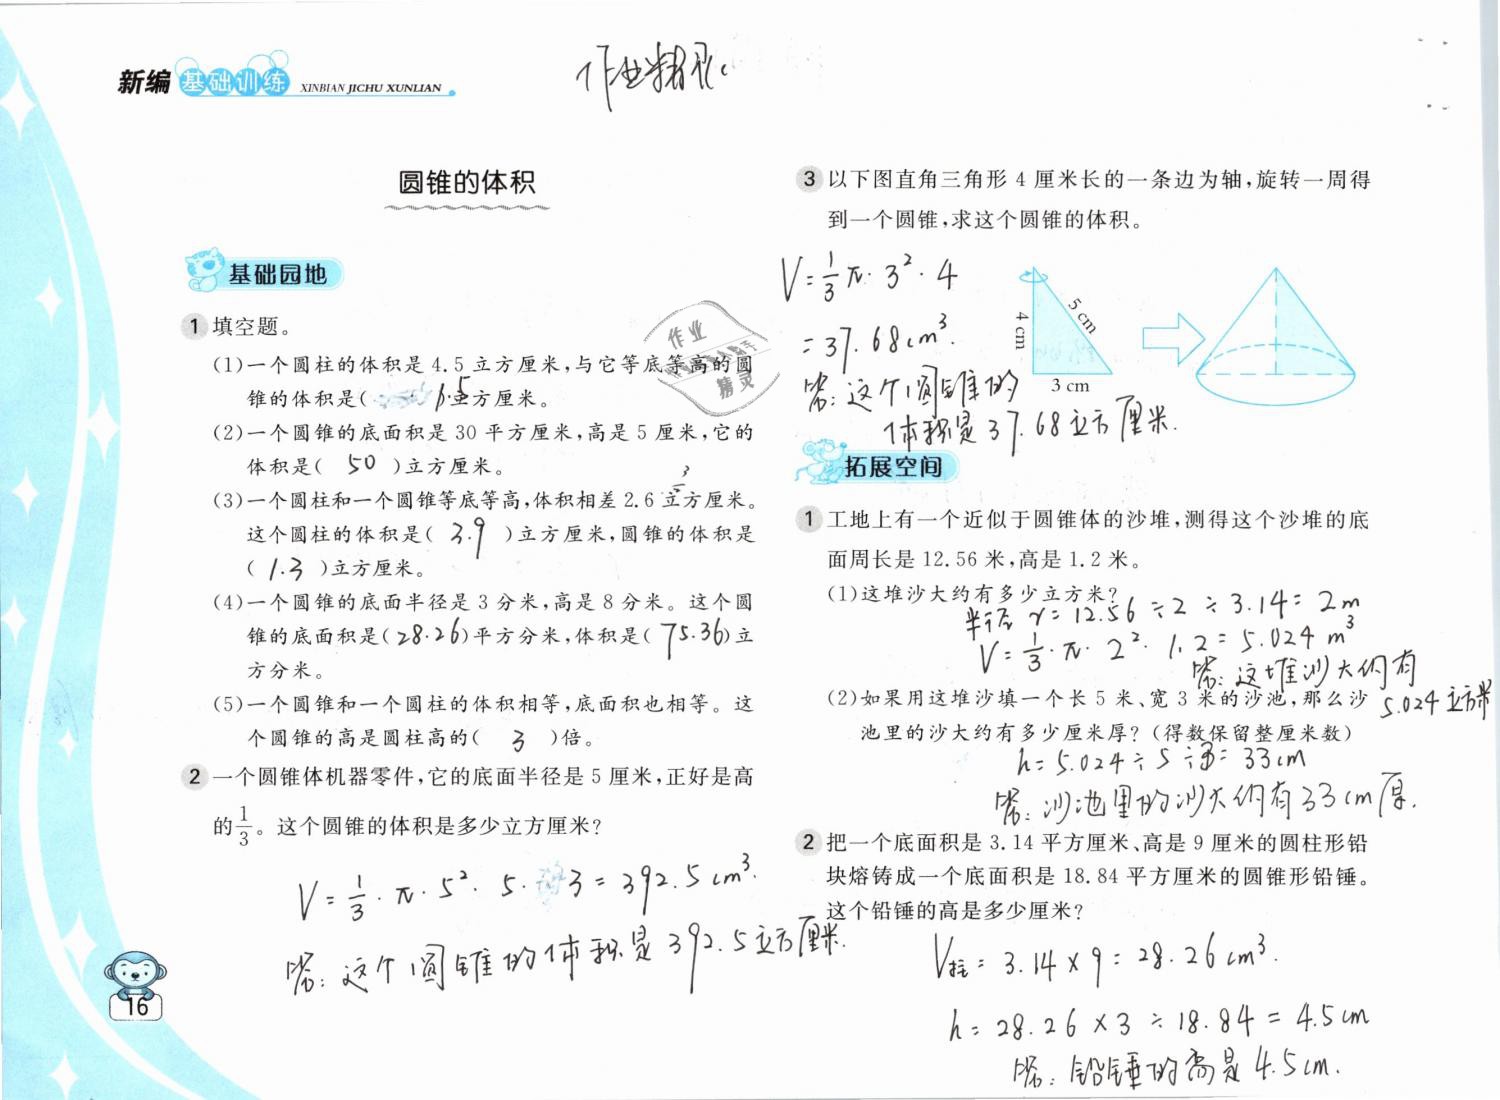 新编 基础训练 XINBIAN JICHU XUNLIAN
作业精灵
圆锥的体积
基础园地
1 填空题。
(1)一个圆柱的体积是 4.5 立方厘米,与它等底等高的圆
锥的体积是( 1.5 )立方厘米。
(2)一个圆锥的底面积是 30 平方厘米,高是 5 厘米,它的
体积是( 50 )立方厘米。
(3)一个圆柱和一个圆锥等底等高,体积相差 2.6 立方厘米。
这个圆柱的体积是( 3.9 )立方厘米,圆锥的体积是
( 1.3 )立方厘米。
(4)一个圆锥的底面半径是 3 分米,高是 8 分米。这个圆
锥的底面积是(28.26)平方分米,体积是( 75.36)立
方分米。
(5)一个圆锥和一个圆柱的体积相等,底面积也相等。这
个圆锥的高是圆柱高的( 3 )倍。
2 一个圆锥体机器零件,它的底面半径是 5 厘米,正好是高
的1/3。这个圆锥的体积是多少立方厘米?
V=1/3·π·5²·5·3=392.5cm³.
答:这个圆锥的体积是392.5立方厘米.
16
3 以下图直角三角形 4 厘米长的一条边为轴,旋转一周得
到一个圆锥,求这个圆锥的体积。
V=1/3π·3²·4
=37.68cm³.
答:这个圆锥的
体积是37.68立方厘米.
4 cm
5 cm
3 cm
作业
精灵
拓展空间
1 工地上有一个近似于圆锥体的沙堆,测得这个沙堆的底
面周长是 12.56 米,高是 1.2 米。
(1)这堆沙大约有多少立方米?
半径r=12.56÷2÷3.14=2m
V=1/3·π·2²·1.2=5.024m³
答:这堆沙大约有
5.024立方米
(2)如果用这堆沙填一个长 5 米、宽 3 米的沙池,那么沙
池里的沙大约有多少厘米厚?(得数保留整厘米数)
h=5.024÷5÷3=33cm
答:沙池里的沙大约有33cm厚.
2 把一个底面积是 3.14 平方厘米、高是 9 厘米的圆柱形铅
块熔铸成一个底面积是 18.84 平方厘米的圆锥形铅锤。
这个铅锤的高是多少厘米?
V柱=3.14×9=28.26cm³.
h=28.26×3÷18.84=4.5cm
答:铅锤的高是4.5cm.